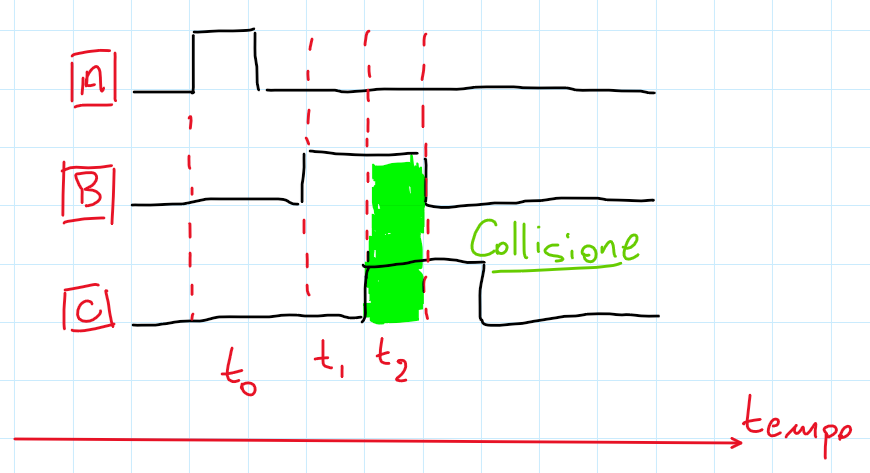 A
B
Collisione
C
t0 t1 t2
tempo